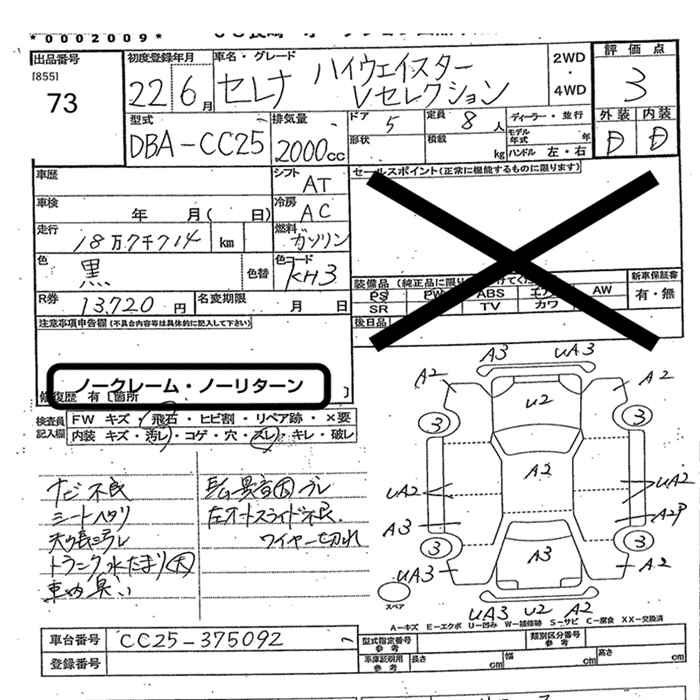 *0002009*
出品番号
[855]
73
初度登録年月
22年6月
車名・グレード
セレナ ハイウェイスター
Vセレクション
2WD
・
4WD
評価点
3
外装 内装
D D
型式
DBA-CC25
排気量
2000cc
ドア 5
定員 8人
ディーラー・並行
形状
積載 kg
モデル年式 年
ハンドル 左・右
車歴
シフト
AT
セールスポイント(正常に機能するものに限ります)
車検 年 月( 日)
冷房
AC
走行
18万7千714 km
燃料
ガソリン
色
黒
色替
色コード
KH3
R券
13,720円
名変期限 月 日
PS PW ABS エアB AW
SR TV カワ
新車保証書
有・無
後日品
注意事項申告欄(不具合内容等は具体的に記入して下さい)
ノークレーム・ノーリターン
修復歴 有 [箇所 ]
検査員記入欄
FW キズ・飛石・ヒビ割・リペア跡・×要
内装 キズ・汚レ・コゲ・穴・スレ・キレ・破レ
ナビ不良
シートヘタリ
トランク水たまり大
車内臭い
左オートスライド不良
ワイヤー切れ
A3 UA3
A2 U2 A2
3 3
A2
UA2 UA2
A3 A2P
3 3
A3
UA3 A2
スペア
UA3 U2 A2
A-キズ E-エクボ U-凹み W-補修跡 S-サビ C-腐食 XX-交換済
車台番号 CC25-375092
登録番号
型式指定番号
参考
類別区分番号
参考
車庫証明用
参考
長さ cm 幅 cm 高さ cm